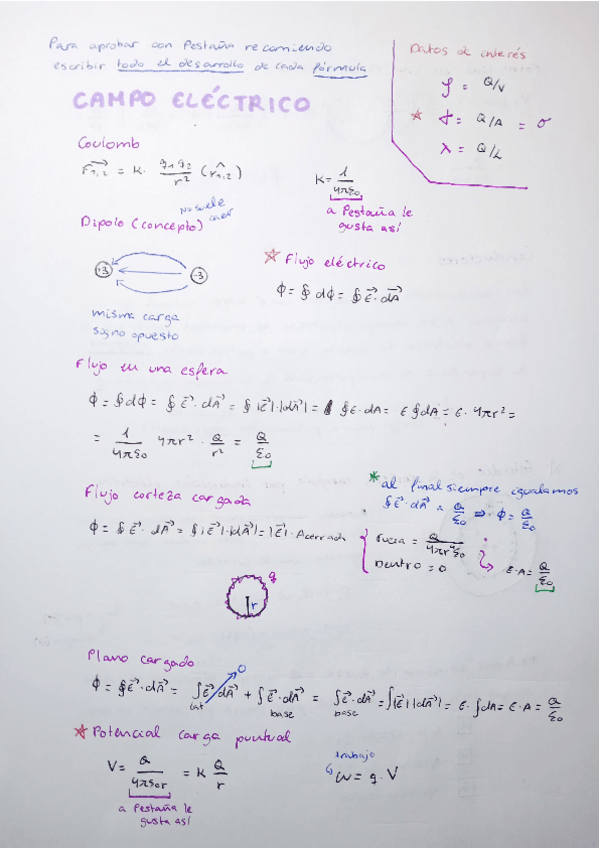 Para aprobar con Pestaña recomiendo
escribir todo el desarrollo de cada fórmula
Datos de interés
ρ = Q/V
☆ σ = Q/A = σ
λ = Q/L
CAMPO ELÉCTRICO
Coulomb
F₁,₂ = K · q₁q₂/r² (r̂₁,₂)
K = 1/4πε₀
a Pestaña le
gusta así
Dipolo (concepto)
No suele
caer
+3 -3
misma carga
signo opuesto
☆ Flujo eléctrico
ϕ = ∮ dϕ = ∮ E⃗ · dA⃗
Flujo en una esfera
ϕ = ∮ dϕ = ∮ E⃗ · dA⃗ = ∮ |E⃗| · |dA⃗| = ∮ E · dA = E ∮ dA = E · 4πr² =
= 1/4πε₀ 4πr² · Q/r² = Q/ε₀
* al final siempre igualamos
∮ E⃗ · dA⃗ a Q/ε₀ ⇒ ϕ = Q/ε₀
Flujo corteza cargada
ϕ = ∮ E⃗ · dA⃗ = ∮ |E⃗| · |dA⃗| = |E⃗| · A cerrada
Fuera = Q/4πr²ε₀
Dentro = 0
E · A = Q/ε₀
q
r
Plano cargado
ϕ = ∮ E⃗ · dA⃗ = ∫lat E⃗ · dA⃗ 0 + ∫base E⃗ · dA⃗ = ∫base E⃗ · dA⃗ = ∫|E⃗| · |dA⃗| = E · ∫dA = E · A = Q/ε₀
☆ Potencial carga puntual
V = Q/4πε₀r = K Q/r
a Pestaña le
gusta así
trabajo
W = q · V